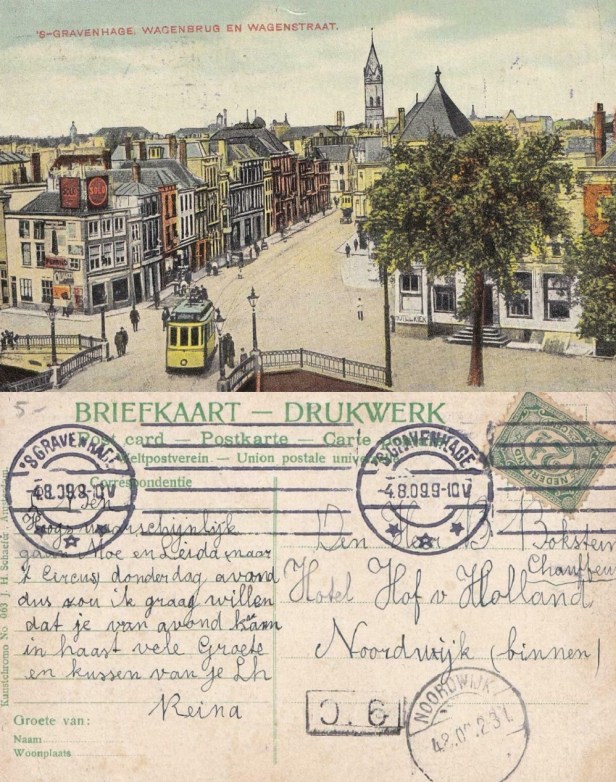 'S-GRAVENHAGE. WAGENBRUG EN WAGENSTRAAT.
SOLO
5-
BRIEFKAART — DRUKWERK
Post card — Postkarte — Carte
Weltpostverein. — Union postale
Correspondentie
'S GRAVENHAGE
4.8.09.9-10V
'S GRAVENHAGE
4.8.09.9-10V
NEDERL
waarschijnlijk
gaan Moe en Leida naar
't Circus donderdag avond
dus zou ik graag willen
dat je van avond kwam
in haast vele Groete
en kussen van je Lh
Reina
Den Heer B Bokstein
Chauffeur
Hotel Hof v Holland
Noordwijk (binnen)
Groete van:
Naam
Woonplaats
NOORDWIJK
Kunstchromo No 063 J. H. Schaefer